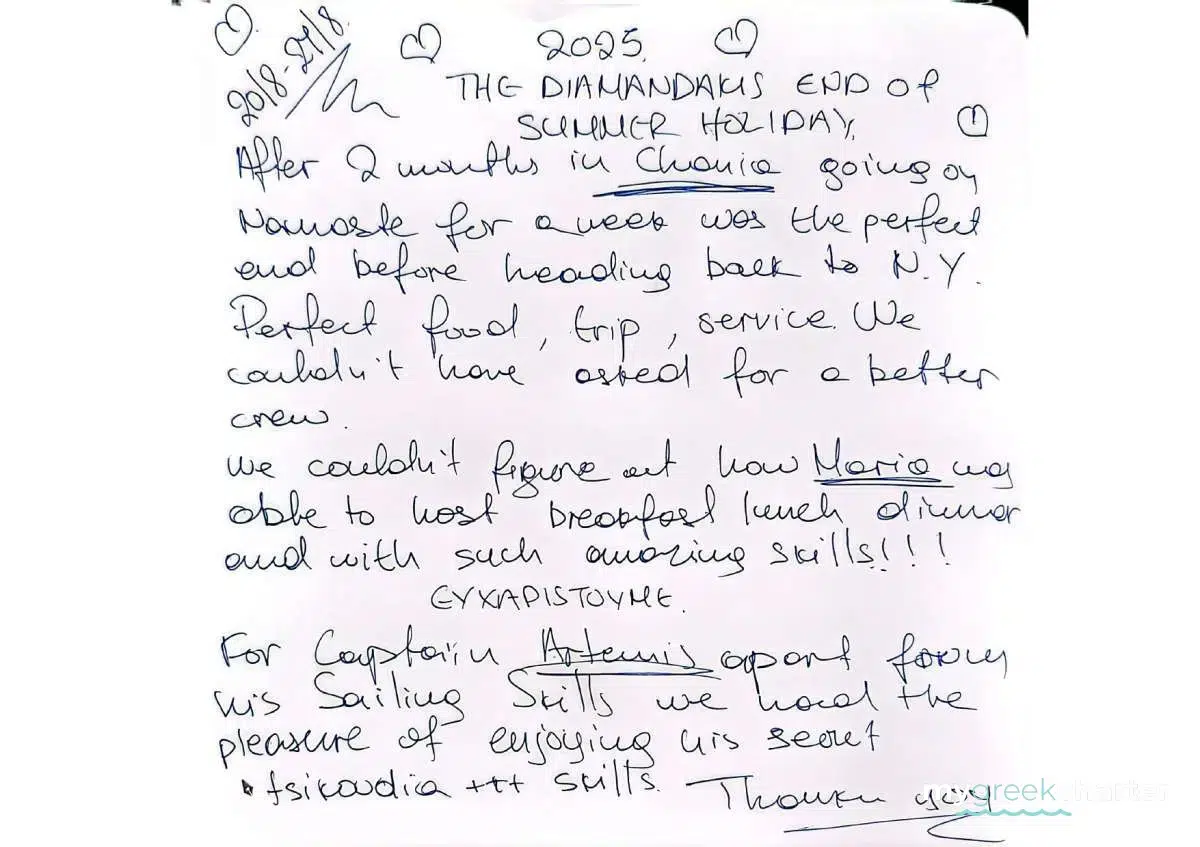 20/8-27/8.
2025.
THE DIAMANDAKIS END OF
SUMMER HOLIDAY.
After 2 months in Chania going on
Namaste for a week was the perfect
end before heading back to N.Y.
Perfect food, trip, service. We
couldn't have asked for a better
crew.
We couldn't figure out how Maria was
able to host breakfast lunch dinner
and with such amazing skills!!!
ΕΥΧΑΡΙΣΤΟΥΜΕ.
For Captain Artemis apart from
his Sailing Skills we had the
pleasure of enjoying his secret
tsikoudia +++ skills. Thank you
mygreekcharter